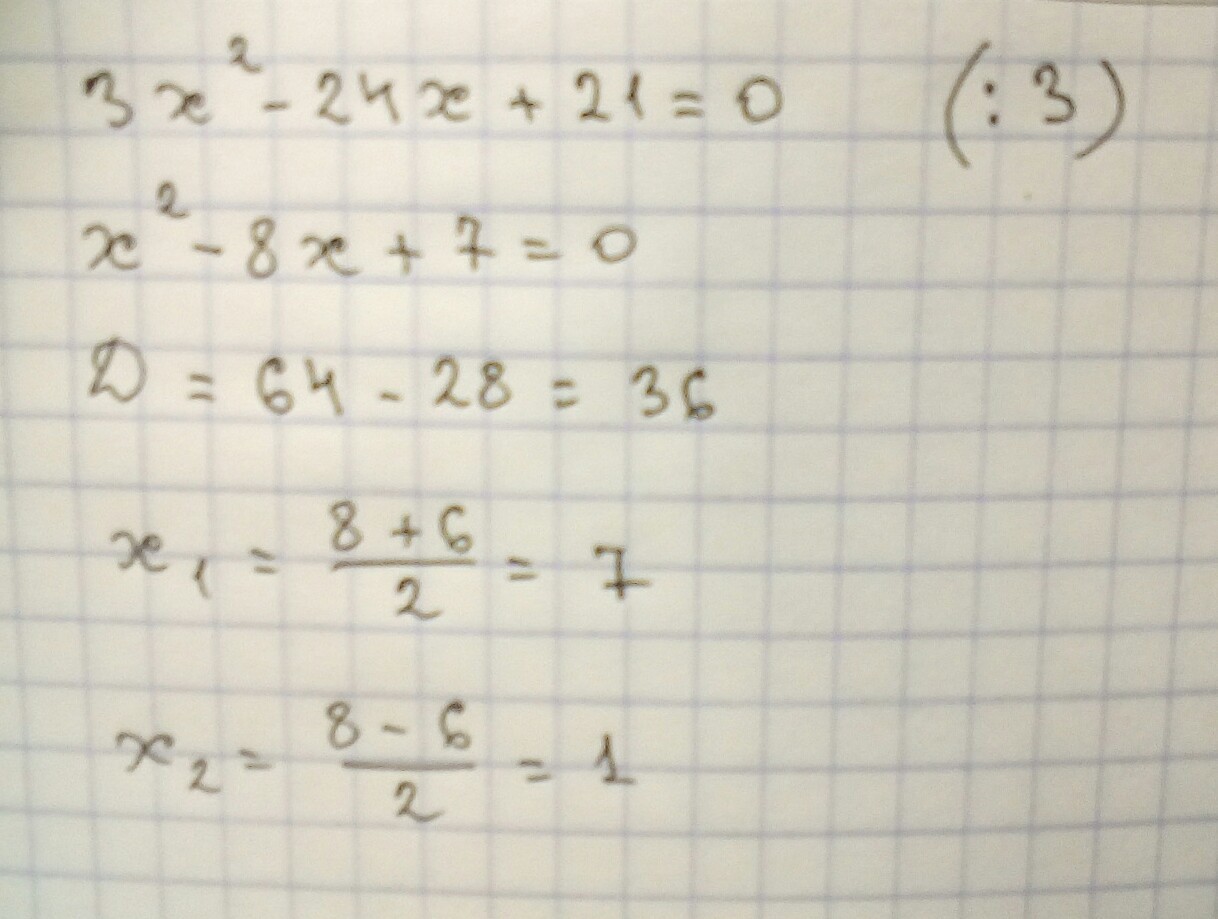 3x² - 24x + 21 = 0 (: 3)
x² - 8x + 7 = 0
D = 64 - 28 = 36
x₁ = (8 + 6)/2 = 7
x₂ = (8 - 6)/2 = 1